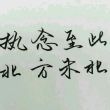 执念至此
北方北